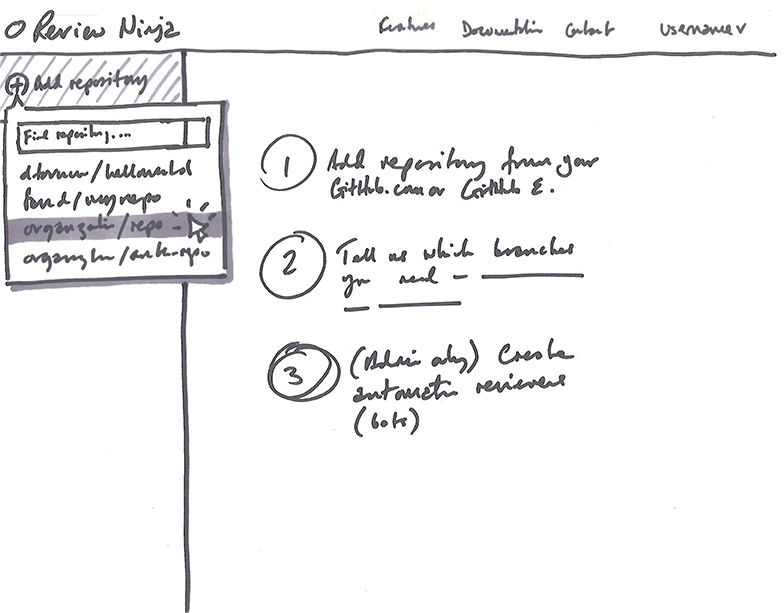 Review Ninja
Features Documentation Contact Username
Add repository
Find repository....
/helloworld
/myrepo
organizatin/repo
1 Add repository from your
GitHub.com or GitHub E.
2 Tell us which branches
you need –
3 (Admin only) Create
automatic reviewers
(bots)